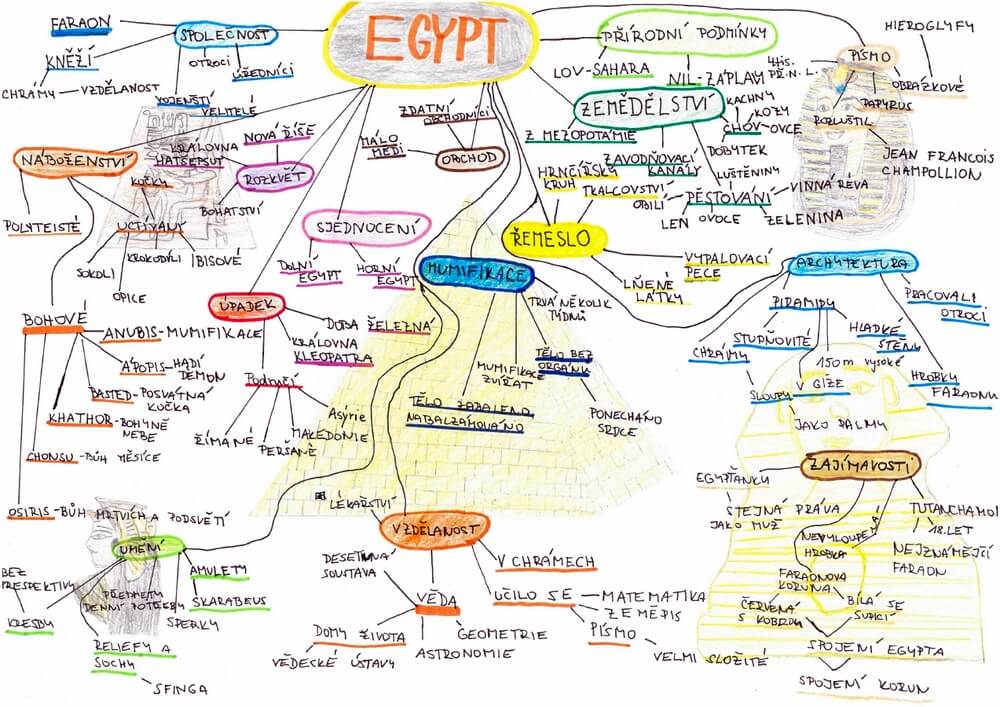 EGYPT
FARAON
SPOLEČNOST
KNĚŽÍ
OTROCI
ÚŘEDNÍCI
CHRÁMY
VZDĚLANOST
VOJENŠTÍ
VELITELÉ
PŘÍRODNÍ PODMÍNKY
LOV-SAHARA
NIL-ZÁPLAVY
ZEMĚDĚLSTVÍ
Z MEZOPOTÁMIE
ZAVODŇOVACÍ
KANÁLY
KACHNY
KOZY
CHOV-OVCE
DOBYTEK
LUŠTĚNINY
PĚSTOVÁNÍ
VINNÁ RÉVA
OBILÍ
LEN
OVOCE
ZELENINA
HIEROGLYFY
4tis.
PŘ.N.L.
PÍSMO
OBRÁZKOVÉ
PAPYRUS
ROZLUŠTIL
JEAN FRANCOIS
CHAMPOLLION
NÁBOŽENSTVÍ
POLYTEISTÉ
UCTÍVANÍ
KOČKY
SOKOLI
KROKODÝLI
IBISOVÉ
OPICE
NOVÁ ŘÍŠE
KRÁLOVNA
HATŠEPSUT
ROZKVĚT
BOHATSTVÍ
ZDATNÍ
OBCHODNÍCI
MÁLO
MĚDI
OBCHOD
SJEDNOCENÍ
DOLNÍ
EGYPT
HORNÍ
EGYPT
HRNČÍŘSKÝ
KRUH
TKALCOVSTVÍ
ŘEMESLO
VYPALOVACÍ
PECE
LNĚNÉ
LÁTKY
MUMIFIKACE
TRVÁ NĚKOLIK
TÝDNŮ
MUMIFIKACE
ZVÍŘAT
TĚLO BEZ
ORGÁNŮ
PONECHÁNO
SRDCE
TĚLO ZABALENO
NABALZAMOVÁNO
ARCHYTEKTURA
PYRAMIDY
PRACOVALI
OTROCI
STUPŇOVITÉ
HLADKÉ
STĚNY
CHRÁMY
150m vysoké
V GÍZE
HROBKY
FARAONŮ
SLOUPY
JAKO PALMY
ÚPADEK
DOBA ŽELEZNÁ
KRÁLOVNA
KLEOPATRA
Podmaní
ŘÍMANÉ
PERŠANÉ
MAKEDONIE
Asýrie
BOHOVÉ
ANUBIS-MUMIFIKACE
ÁPOPIS-HADÍ
DEMON
BASTED-POSVÁTNÁ
KOČKA
KHATHOR-BOHYNĚ
NEBE
CHONSU-BŮH MĚSÍCE
OSIRIS-BŮH MRTVÍCH A PODSVĚTÍ
UMĚNÍ
BEZ
PRESPEKTIVY
KRESBY
PŘEDMĚTY
DENNÍ POTŘEBY
ŠPERKY
AMULETY
SKARABEUS
RELIEFY A
SOCHY
SFINGA
LÉKAŘSTVÍ
VZDĚLANOST
DESETINNÁ
SOUSTAVA
V CHRÁMECH
VĚDA
UČILO SE
MATEMATIKA
ZEMĚPIS
PÍSMO
VELMI SLOŽITÉ
DOMY ŽIVOTA
VĚDECKÉ ÚSTAVY
GEOMETRIE
ASTRONOMIE
ZAJÍMAVOSTI
EGYPŤANKY
STEJNÁ PRÁVA
JAKO MUŽ
HROBKA
18.LET
NEJZNÁMĚJŠÍ
FARAON
FARAONOVA
KORUNA
ČERVENÁ
S KOBROU
BÍLÁ SE
SUPICÍ
SPOJENÍ EGYPTA
SPOJENÍ KORUN